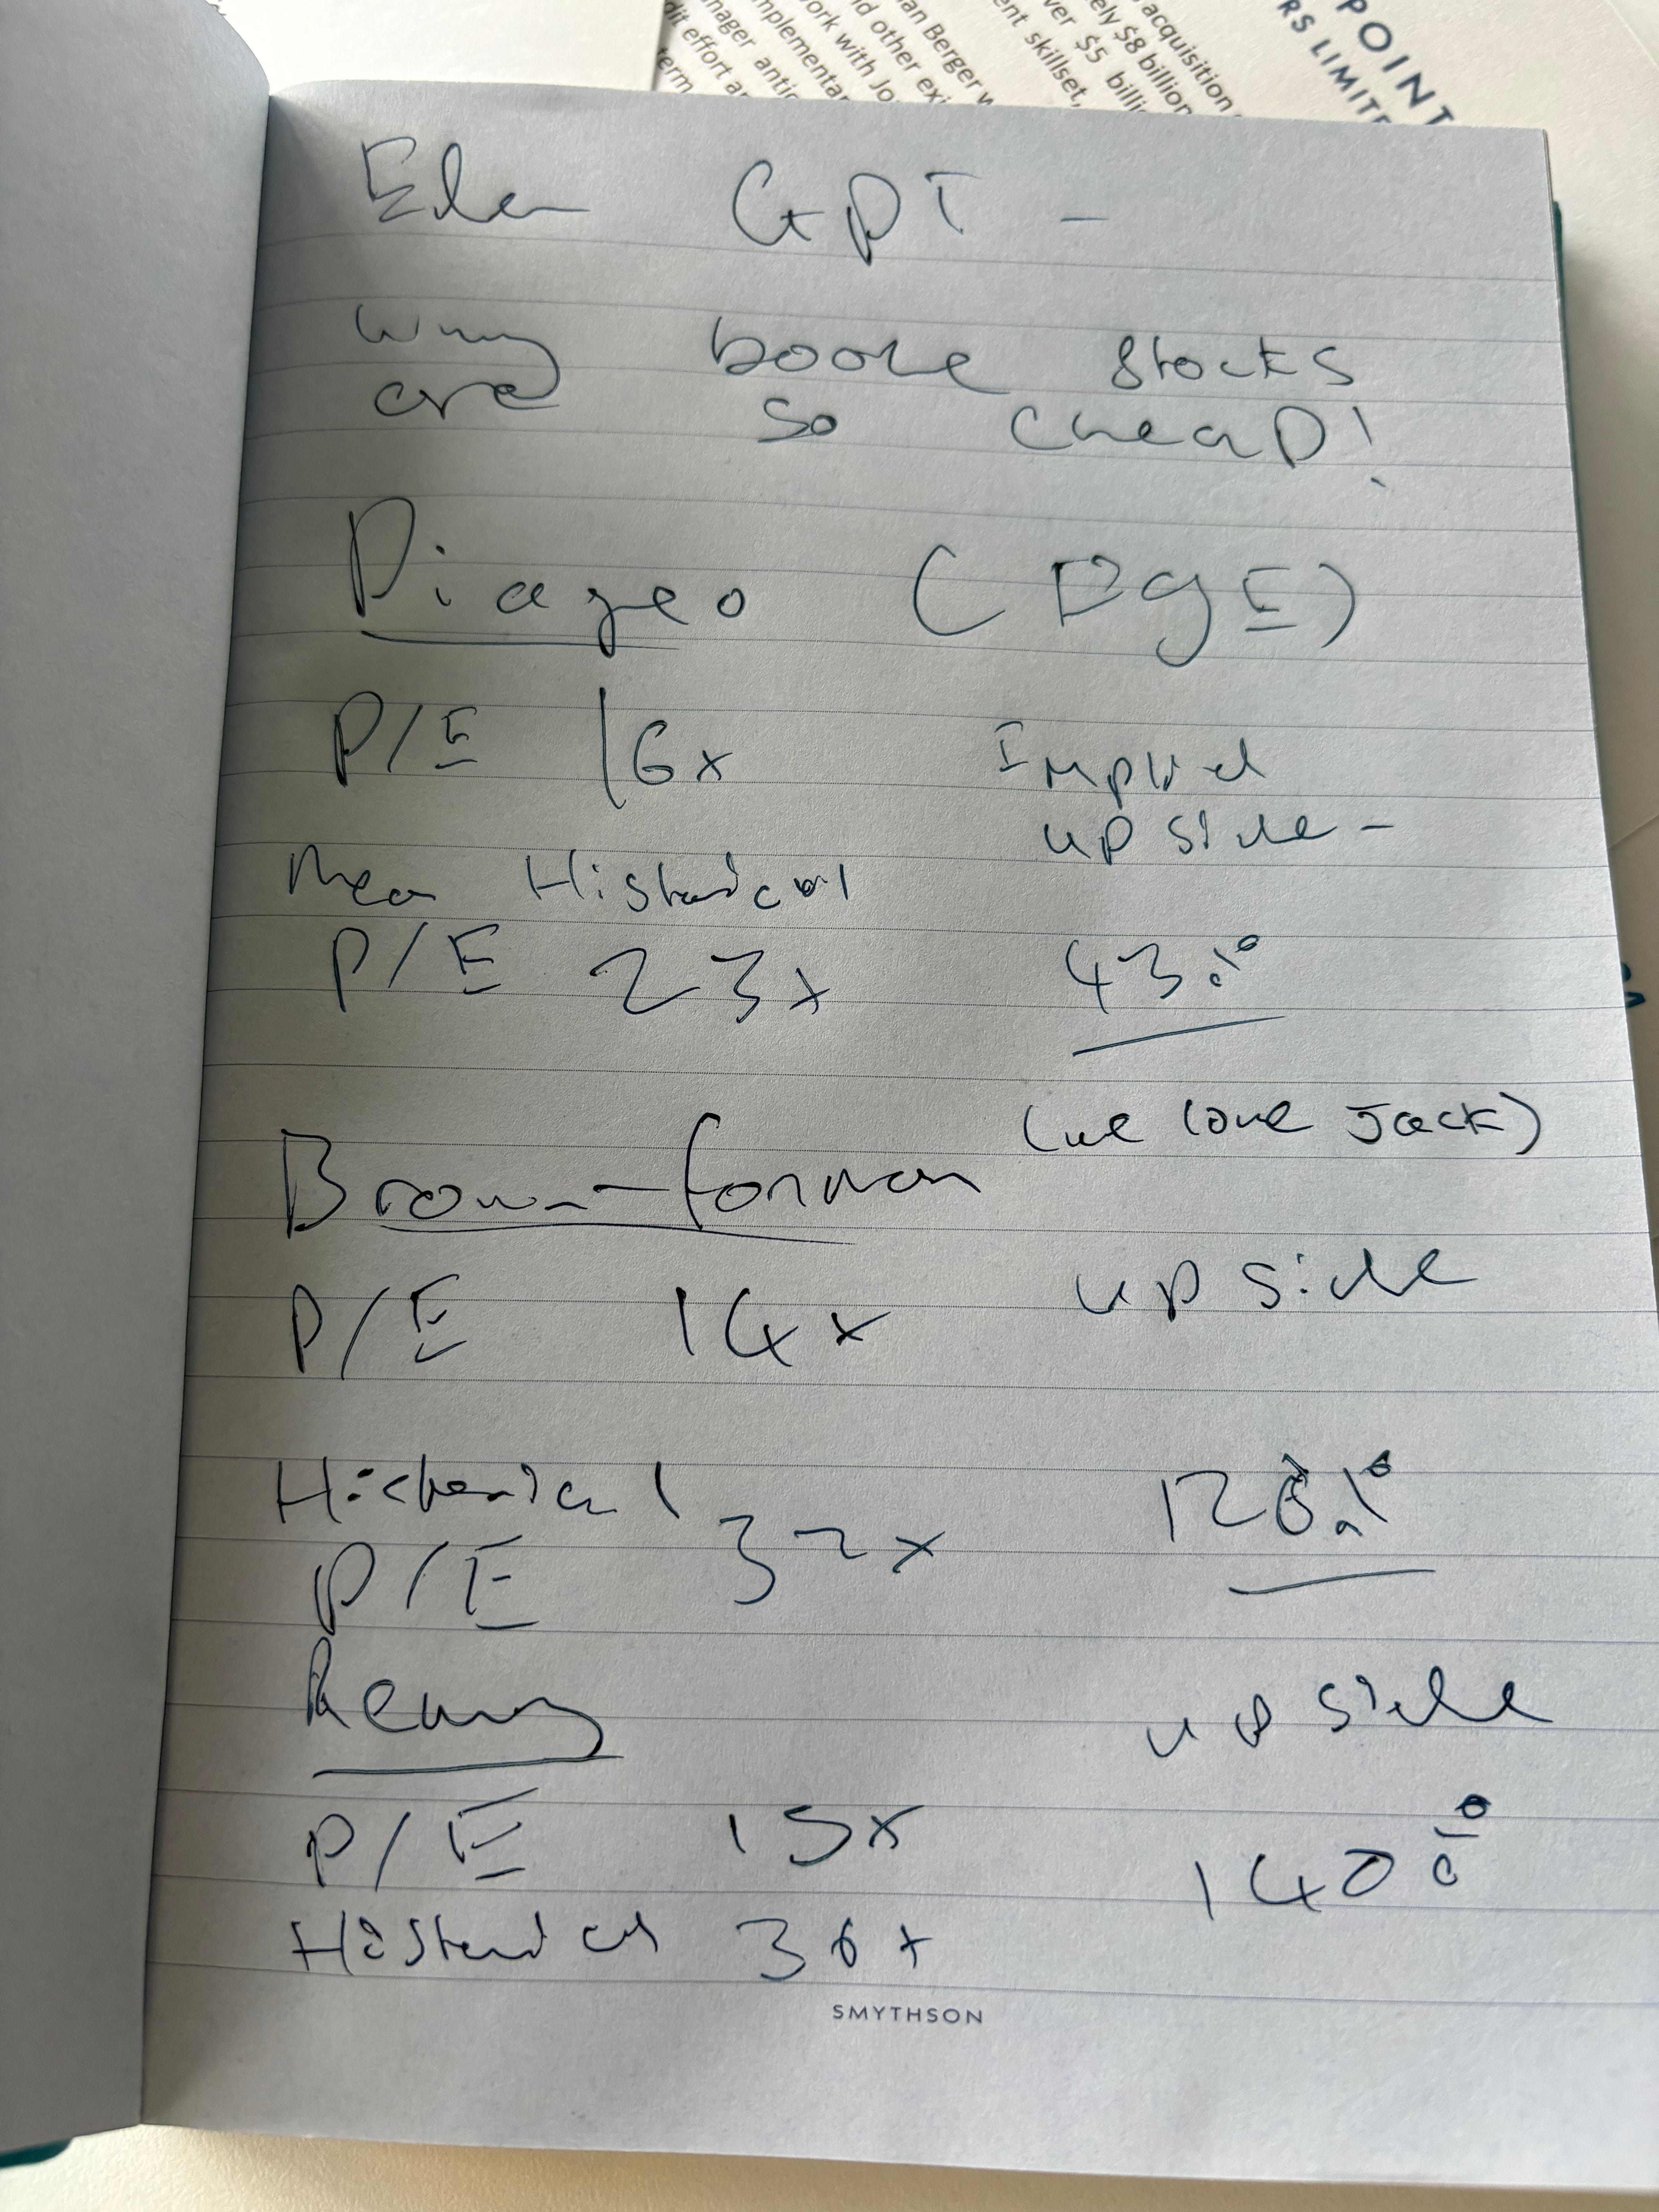 POINT
RS LIMITE
acquisition
ely $8 billion
ver $5 billi
ent skillset,
an Berger w
nd other exi
ork with Jo
mplementa
nager antic
dit effort a
term
Eden GPT -
Why booze stocks
are so cheap!
Diageo (DgE)
P/E 16x Implied
upside -
Mean Historical
P/E 23x 43%
(we love Jack)
Brown-forman
P/E 14x upside
Historical 128%
P/E 32x
Remy upside
P/E 15x 140%
Historical 36x
SMYTHSON